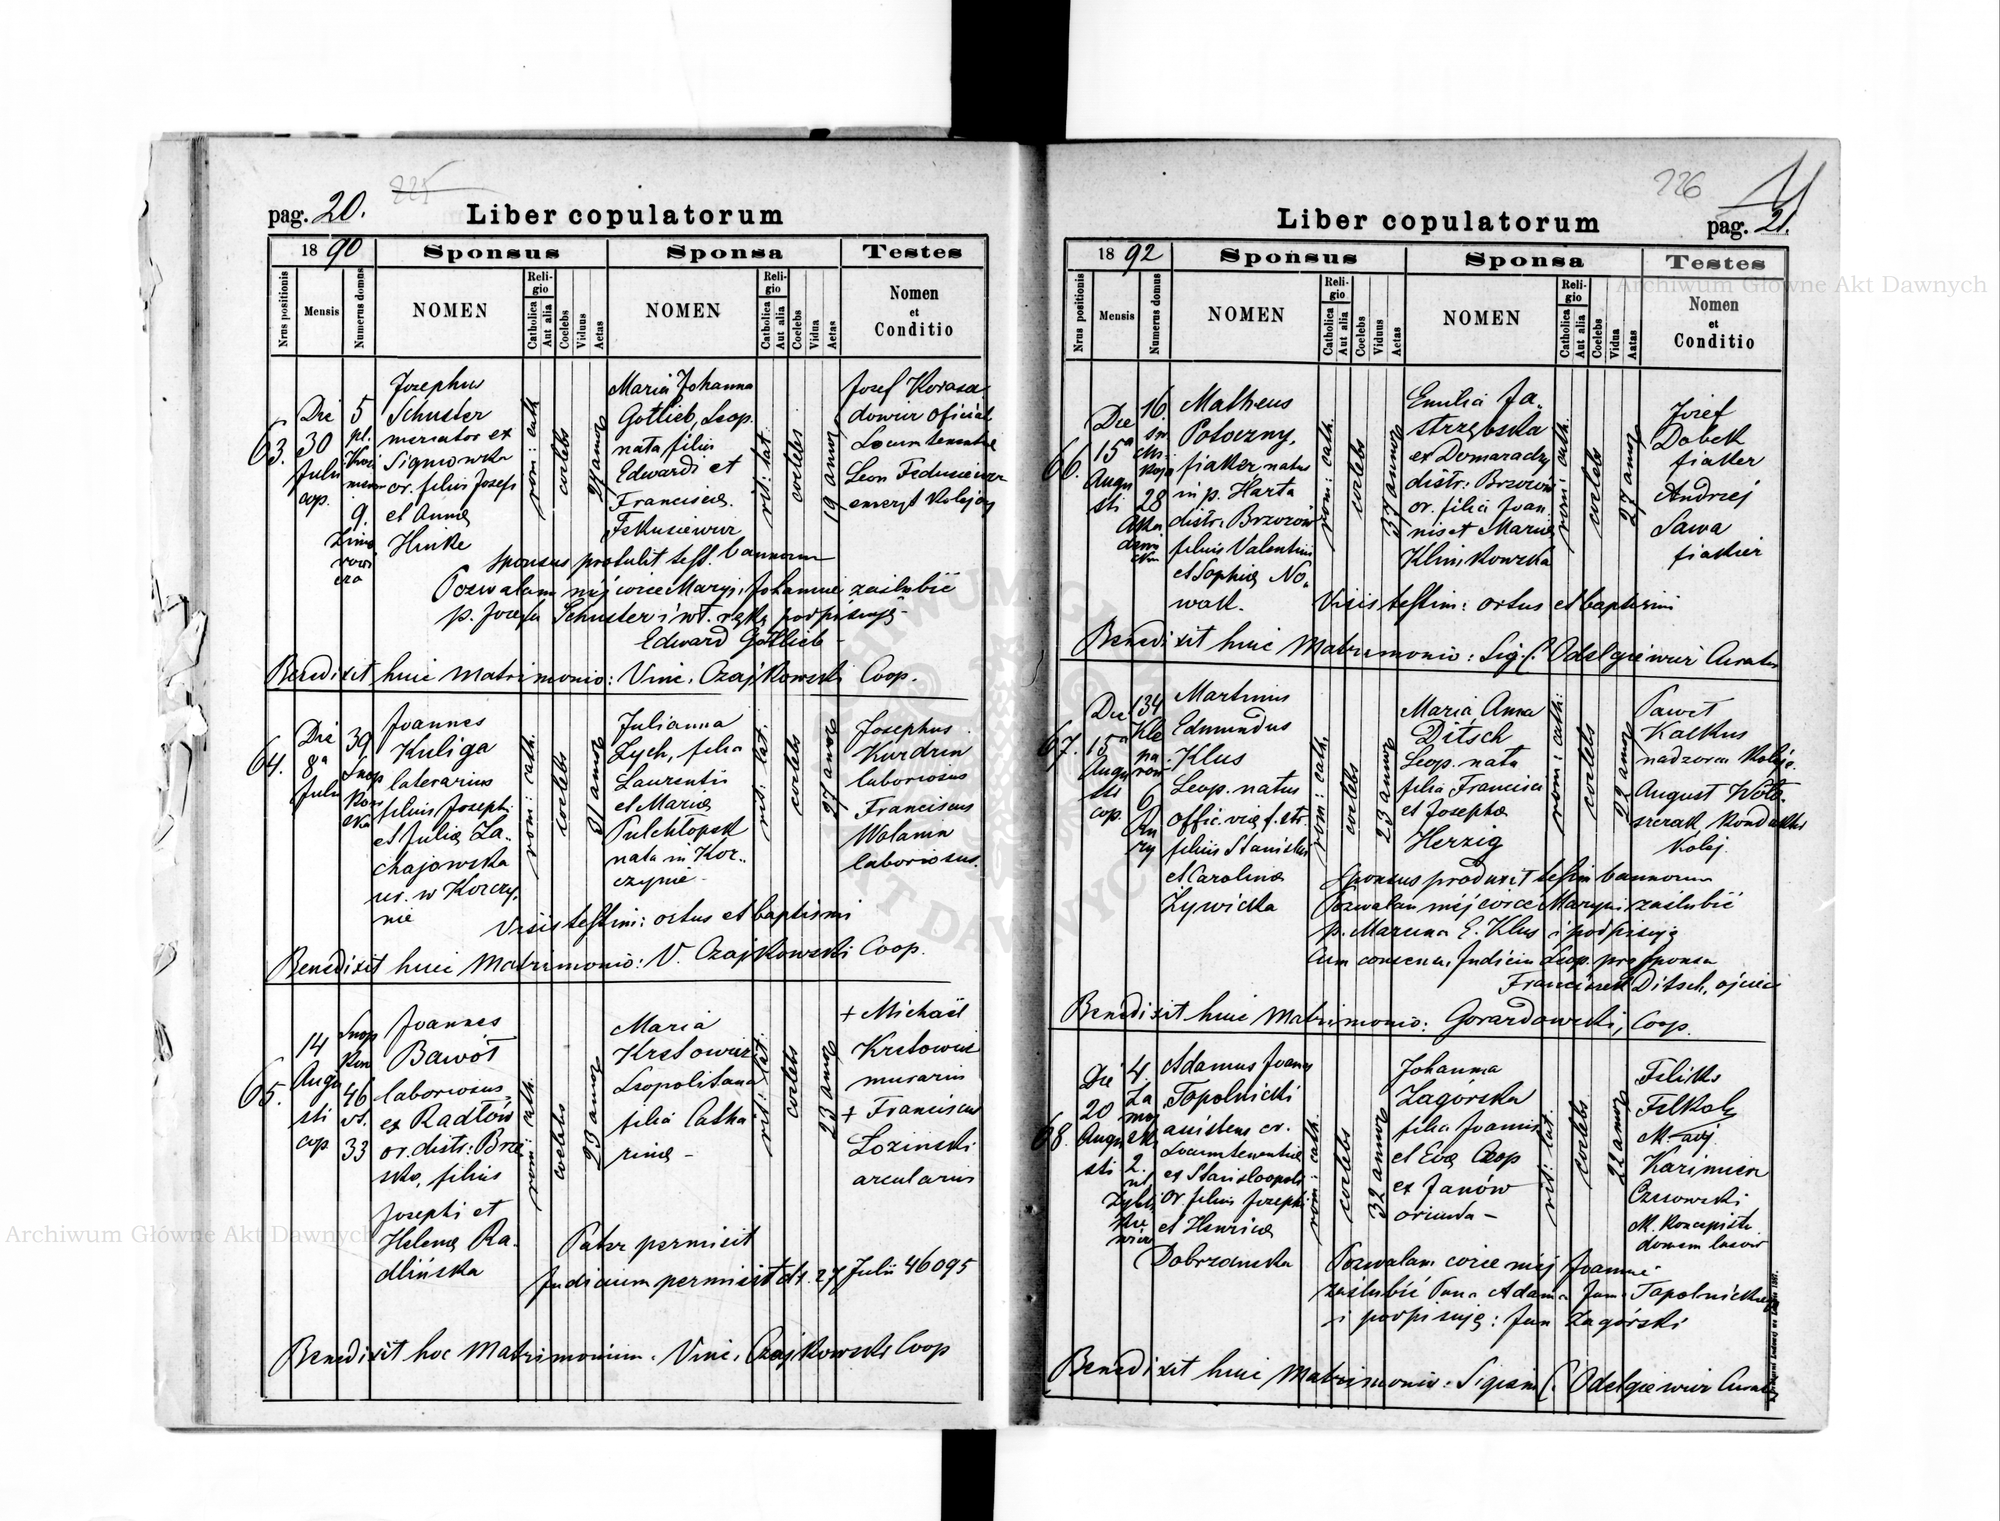 225
pag. 20.
Liber copulatorum
18 90
Sponsus
Sponsa
Testes
Nrus positionis
Mensis
Numerus domus
NOMEN
Religio
Catholica
Aut alia
Coelebs
Viduus
Aetas
NOMEN
Religio
Catholica
Aut alia
Coelebs
Vidua
Aetas
Nomen
et
Conditio
63.
Die
30
Julii
cop.
5
pl.
9.
Josephus
Schuster
mercator ex
or. filius Josefi
et Annae
Hinke
rom: cath.
coelebs
29 annor
Maria Johanna
Gottlieb, Leop.
nata filia
Edwardi et
Franciscae
rit: lat.
coelebs
19 annor
Josef
oficial
Leon
emeryt kolejowy
sponsus protulit test. bannorum
Pozwalam mej córce Maryi Johannie zaślubić
p. Józefa Schuster i wł. ręką podpisuję
Edward Gottlieb
Benedixit huic Matrimonio: Vinc. Czajkowski Coop.
64.
Die
8a
Julii
39
Joannes
Kuliga
laterarius
filius Josephi
et Julia Za-
chajowska
ur. w Korczy-
nie
rom: cath.
coelebs
31 annor
Julianna
Zych, filia
Laurentii
et Maria
nata in Kor-
czynie
rit: lat.
coelebs
27 annor
Josephus
laboriosus
Franciscus
Wolanin
laboriosus.
Visis testim: ortus et baptismi
Benedixit huic Matrimonio: V. Czajkowski Coop.
65.
14
Augu
sti
cop.
46
33
Joannes
Bawół
laboriosus
ex Radłów
or. distr: Brze
sko, filius
Josephi et
Helena Ra-
dlińska
rom: cath.
coelebs
23 annor
Maria
Leopolitana
filia Catha
rinae -
rit: lat.
coelebs
23 annor
+ Michaël
murarius
+ Franciscus
Łoziński
arcularius
Pater permisit
Judicium permisit dt. 27 Julii 46095
Benedixit hoc Matrimonium. Vinc. Czajkowski Coop
226
pag. 21.
Liber copulatorum
18 92
Sponsus
Sponsa
Testes
Nrus positionis
Mensis
Numerus domus
NOMEN
Religio
Catholica
Aut alia
Coelebs
Viduus
Aetas
NOMEN
Religio
Catholica
Aut alia
Coelebs
Vidua
Aatas
Nomen
et
Conditio
66.
Die
15a
Augu
sti
16
28
Matheus
Potoczny,
fiaker natus
in p. Harta
distr. Brzozów
filius Valentini
et Sophia No-
wak.
rom: cath.
coelebs
37 annor
Emilia Ja-
strzębska
ex Domaradz
distr: Brzozów
or. filia Joan
nis et Maria
Klimkowska
rom: cath.
coelebs
27 annor
Józef
Dobek
fiaker
Andrzej
Sawa
fiakier
Visis testim: ortus et baptismi
Benedixit huic Matrimonio: Sig. Odelgiewicz Curatus
67.
Die
15a
Augu
sti
cop.
134
Kle
pa
row
Martinus
Edmundus
Klus
Leop. natus
filius Stanislai
et Carolina
Żywicka
rom: cath.
coelebs
23 annor
Maria Anna
Ditsch
Leop. nata
filia Francisci
et Josepha
Herzig
rom: cath:
coelebs
22 annor
Paweł
Kalkus
nadzorca kolejo.
August
kondukt.
kolej.
Sponsus produxit testim bannorum
Pozwalam mej córce Maryi zaślubić
p. Marcina E. Klus i podpisuję
Franciszek Ditsch, ojciec
Benedixit huic Matrimonio: Gorazdowski, Coop.
68.
Die
20
Augu
sti
4.
2.
Adamus Joannes
Topolnicki
assistens cr.
Locumtenentiae
ex Stanisloopoli
or. filius Josephi
et Henrica
Dobrzańska
rom: cath.
coelebs
32 annor
Johanna
Zagórska
filia Joannis
et Eva Czop
ex Janów
oriunda -
rit: lat.
coelebs
22 annor
Feliks
Kazimierz
Czesowski
Pozwalam córce mej Joannie
zaślubić Pana Adama Jana Topolnickiego
i podpisuję: Jan Zagórski
Benedixit huic Matrimonio: Sigism. Odelgiewicz Curatus
Archiwum Główne Akt Dawnych
Archiwum Główne Akt Dawnych